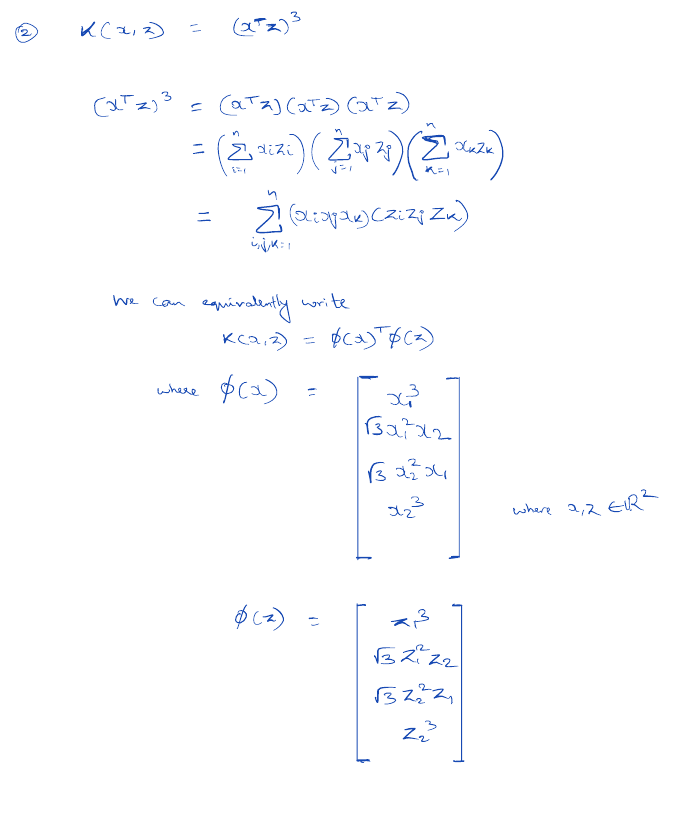 ② K(x,z) = (xᵀz)³
(xᵀz)³ = (xᵀz)(xᵀz)(xᵀz)
= (∑ⁿᵢ₌₁ xᵢzᵢ)(∑ⁿⱼ₌₁ xⱼzⱼ)(∑ⁿₖ₌₁ xₖzₖ)
= ∑ⁿᵢ,ⱼ,ₖ₌₁ (xᵢxⱼxₖ)(zᵢzⱼzₖ)
We can equivalently write
K(x,z) = φ(x)ᵀφ(z)
where φ(x) = [
x₁³
√3 x₁²x₂
√3 x₂²x₁
x₂³
] where x,z ∈ ℝ²
φ(z) = [
z₁³
√3 z₁²z₂
√3 z₂²z₁
z₂³
]